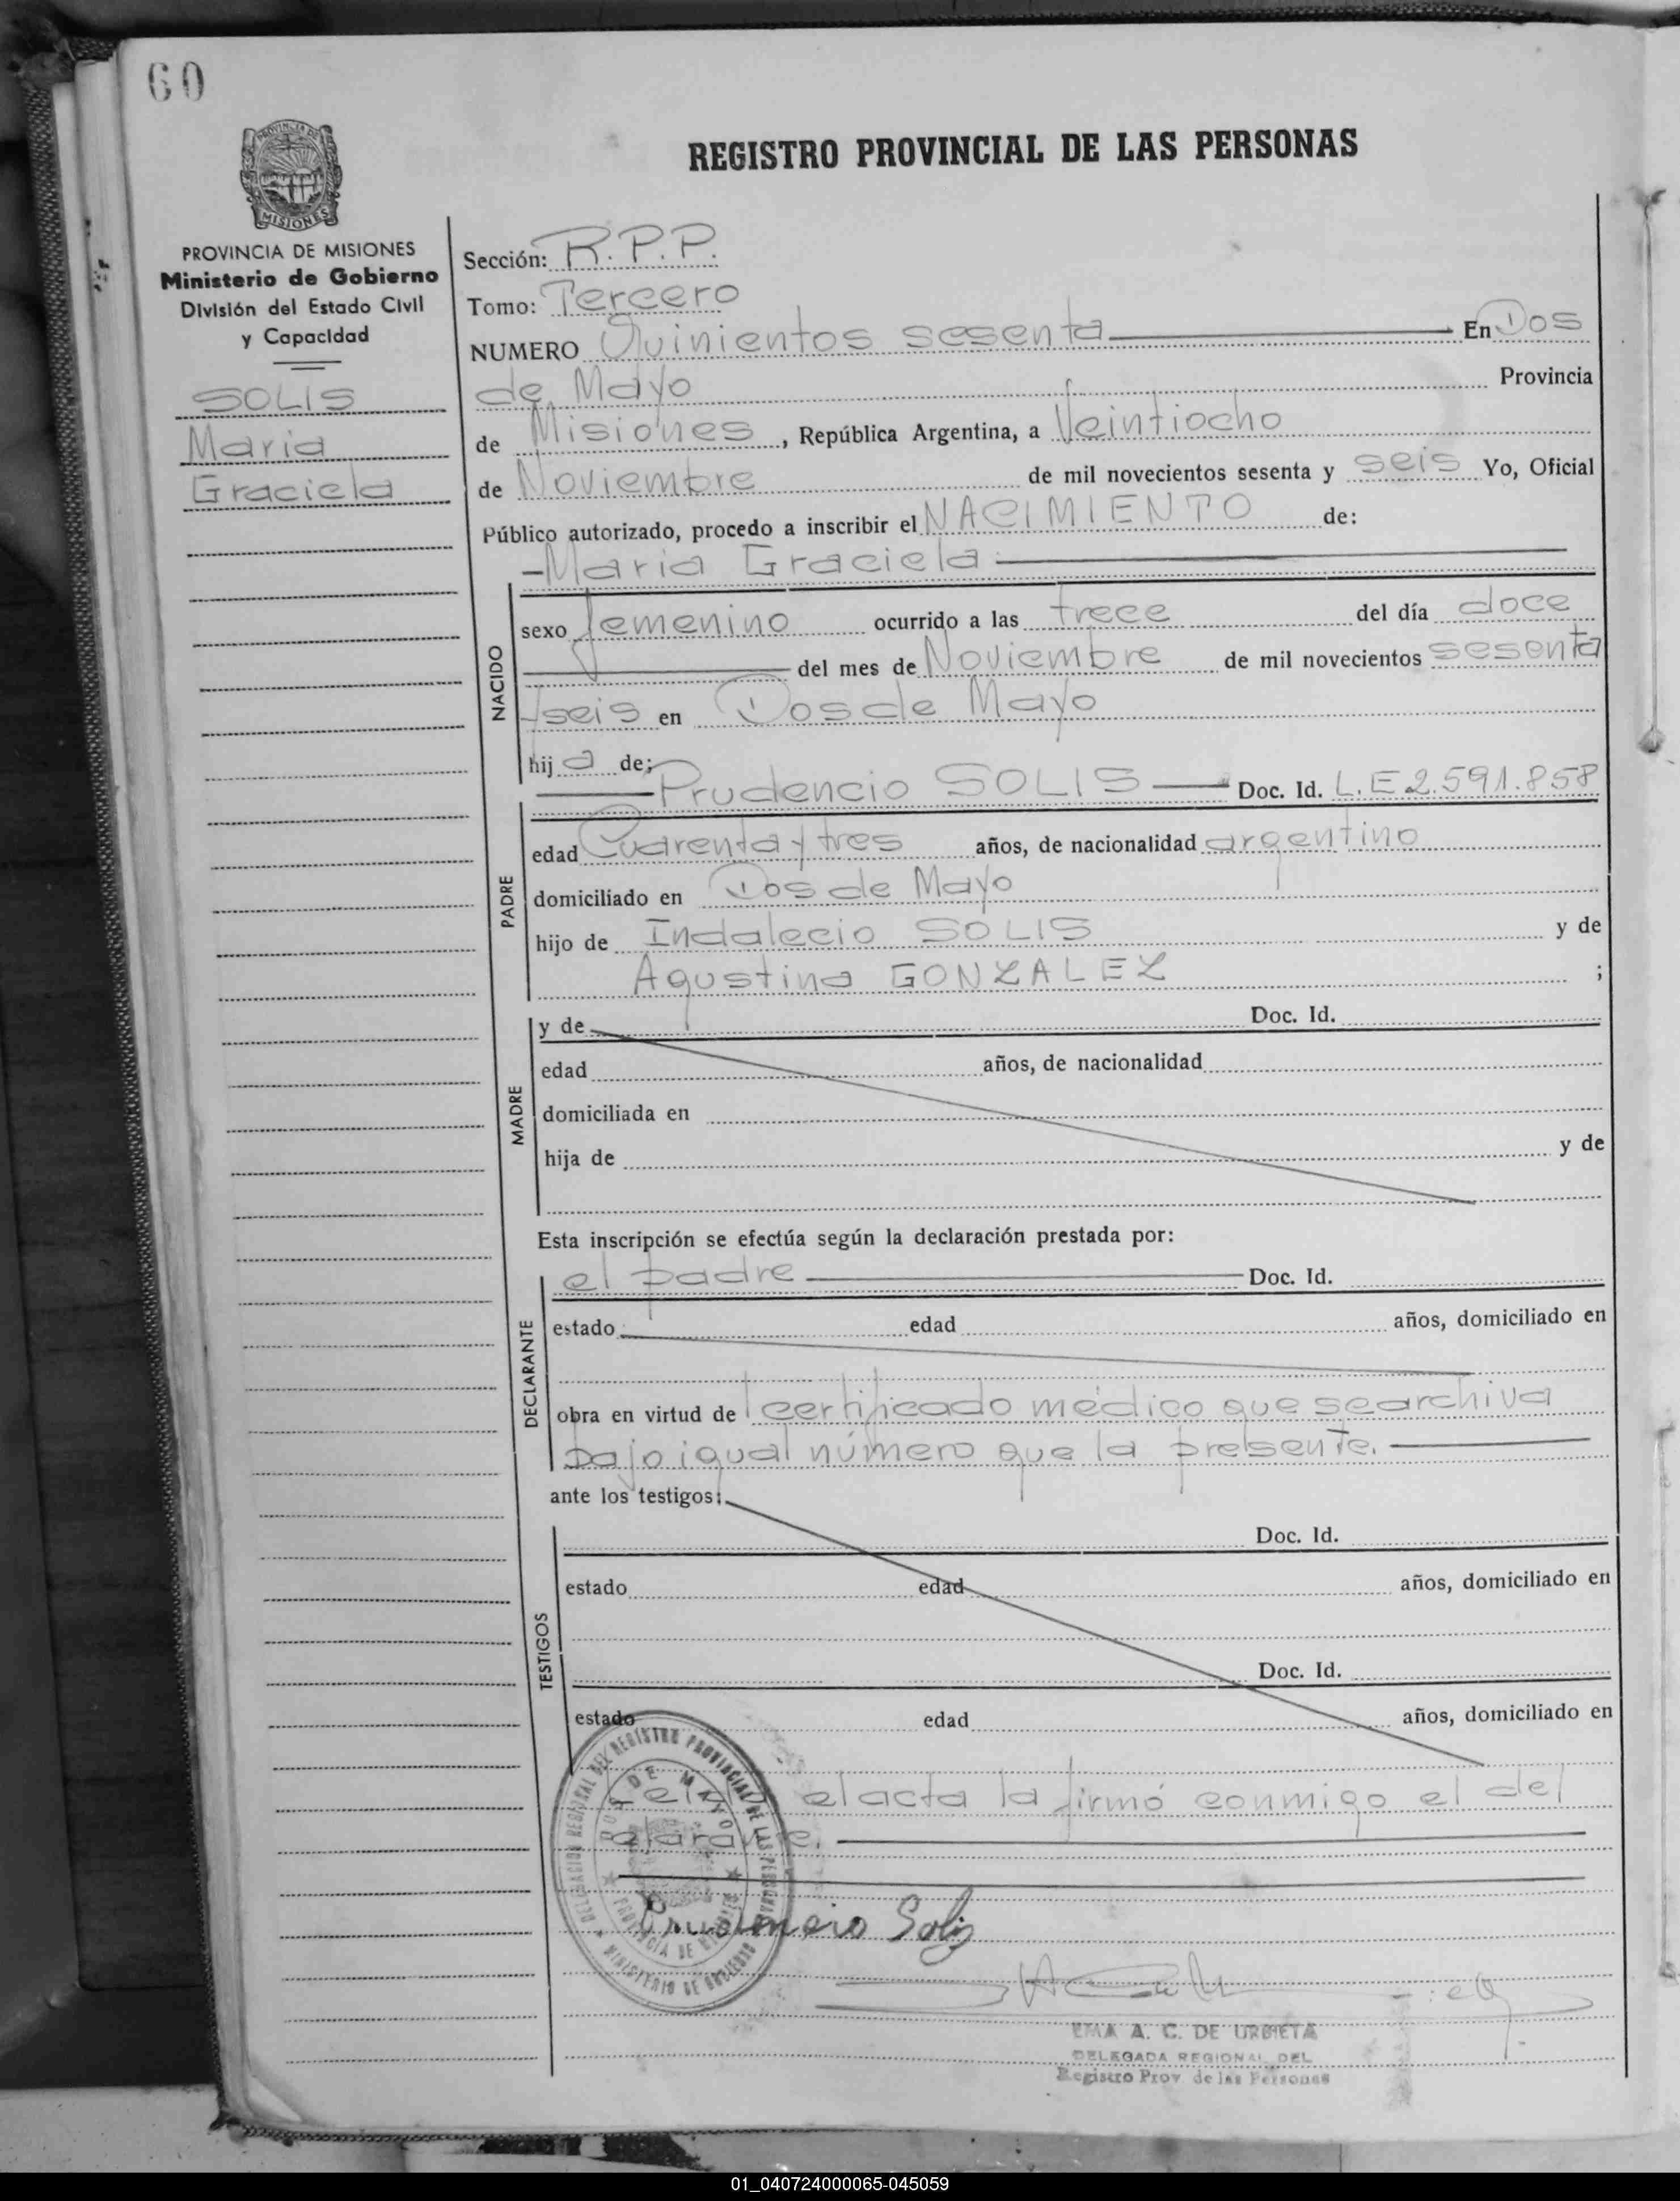 60
PROVINCIA DE
MISIONES
REGISTRO PROVINCIAL DE LAS PERSONAS
PROVINCIA DE MISIONES
Ministerio de Gobierno
División del Estado Civil
y Capacidad
SOLIS
Maria
Graciela
Sección: R.P.P.
Tomo: Tercero
NUMERO Quinientos sesenta En Dos
de Mayo Provincia
de Misiones, República Argentina, a Veintiocho
de Noviembre de mil novecientos sesenta y seis Yo, Oficial
Público autorizado, procedo a inscribir el NACIMIENTO de:
Maria Graciela
NACIDO
sexo femenino ocurrido a las trece del día doce
del mes de Noviembre de mil novecientos sesenta
y seis en Dos de Mayo
hij a de:
Prudencio SOLIS Doc. Id. L.E 2.591.858
PADRE
edad Cuarenta y tres años, de nacionalidad argentino
domiciliado en Dos de Mayo
hijo de Indalecio SOLIS y de
Agustina GONZALEZ ;
MADRE
y de Doc. Id.
edad años, de nacionalidad
domiciliada en
hija de y de
Esta inscripción se efectúa según la declaración prestada por:
DECLARANTE
el padre Doc. Id.
estado edad años, domiciliado en
obra en virtud de certificado médico que se archiva
bajo igual número que la presente.
ante los testigos:
TESTIGOS
Doc. Id.
estado edad años, domiciliado en
Doc. Id.
estado edad años, domiciliado en
el acta la firmó conmigo el del
clarante.
DELEGACION REGIONAL DEL REGISTRO PROVINCIAL DE LAS PERSONAS
MINISTERIO DE GOBIERNO
DOS DE MAYO
PROVINCIA DE MISIONES
Solis
EMA A. C. DE URBIETA
DELEGADA REGIONAL DEL
Registro Prov. de las Personas
01_040724000065-045059